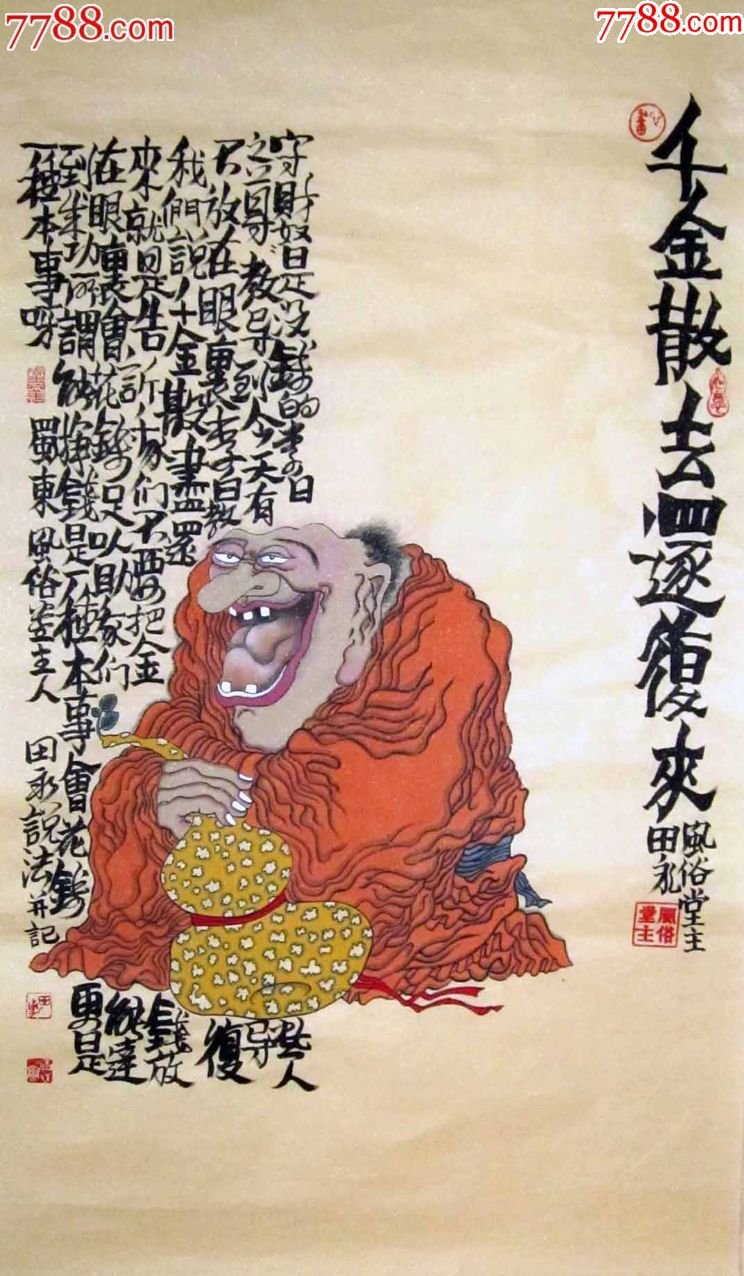 千金散去還復來
風俗堂主
田永
風俗堂主
守財奴是沒錢的李白
教导到今天有些人
不放在眼裏李白教导
我們說千金散盡還復
來就是告訴大家們不要把金錢放
在眼裏會花錢足以助家們能達
到成功所謂能掙錢是一種本事會花錢更是
一種本事呀 蜀東風俗堂主人 田永說法并記
7788.com
7788.com